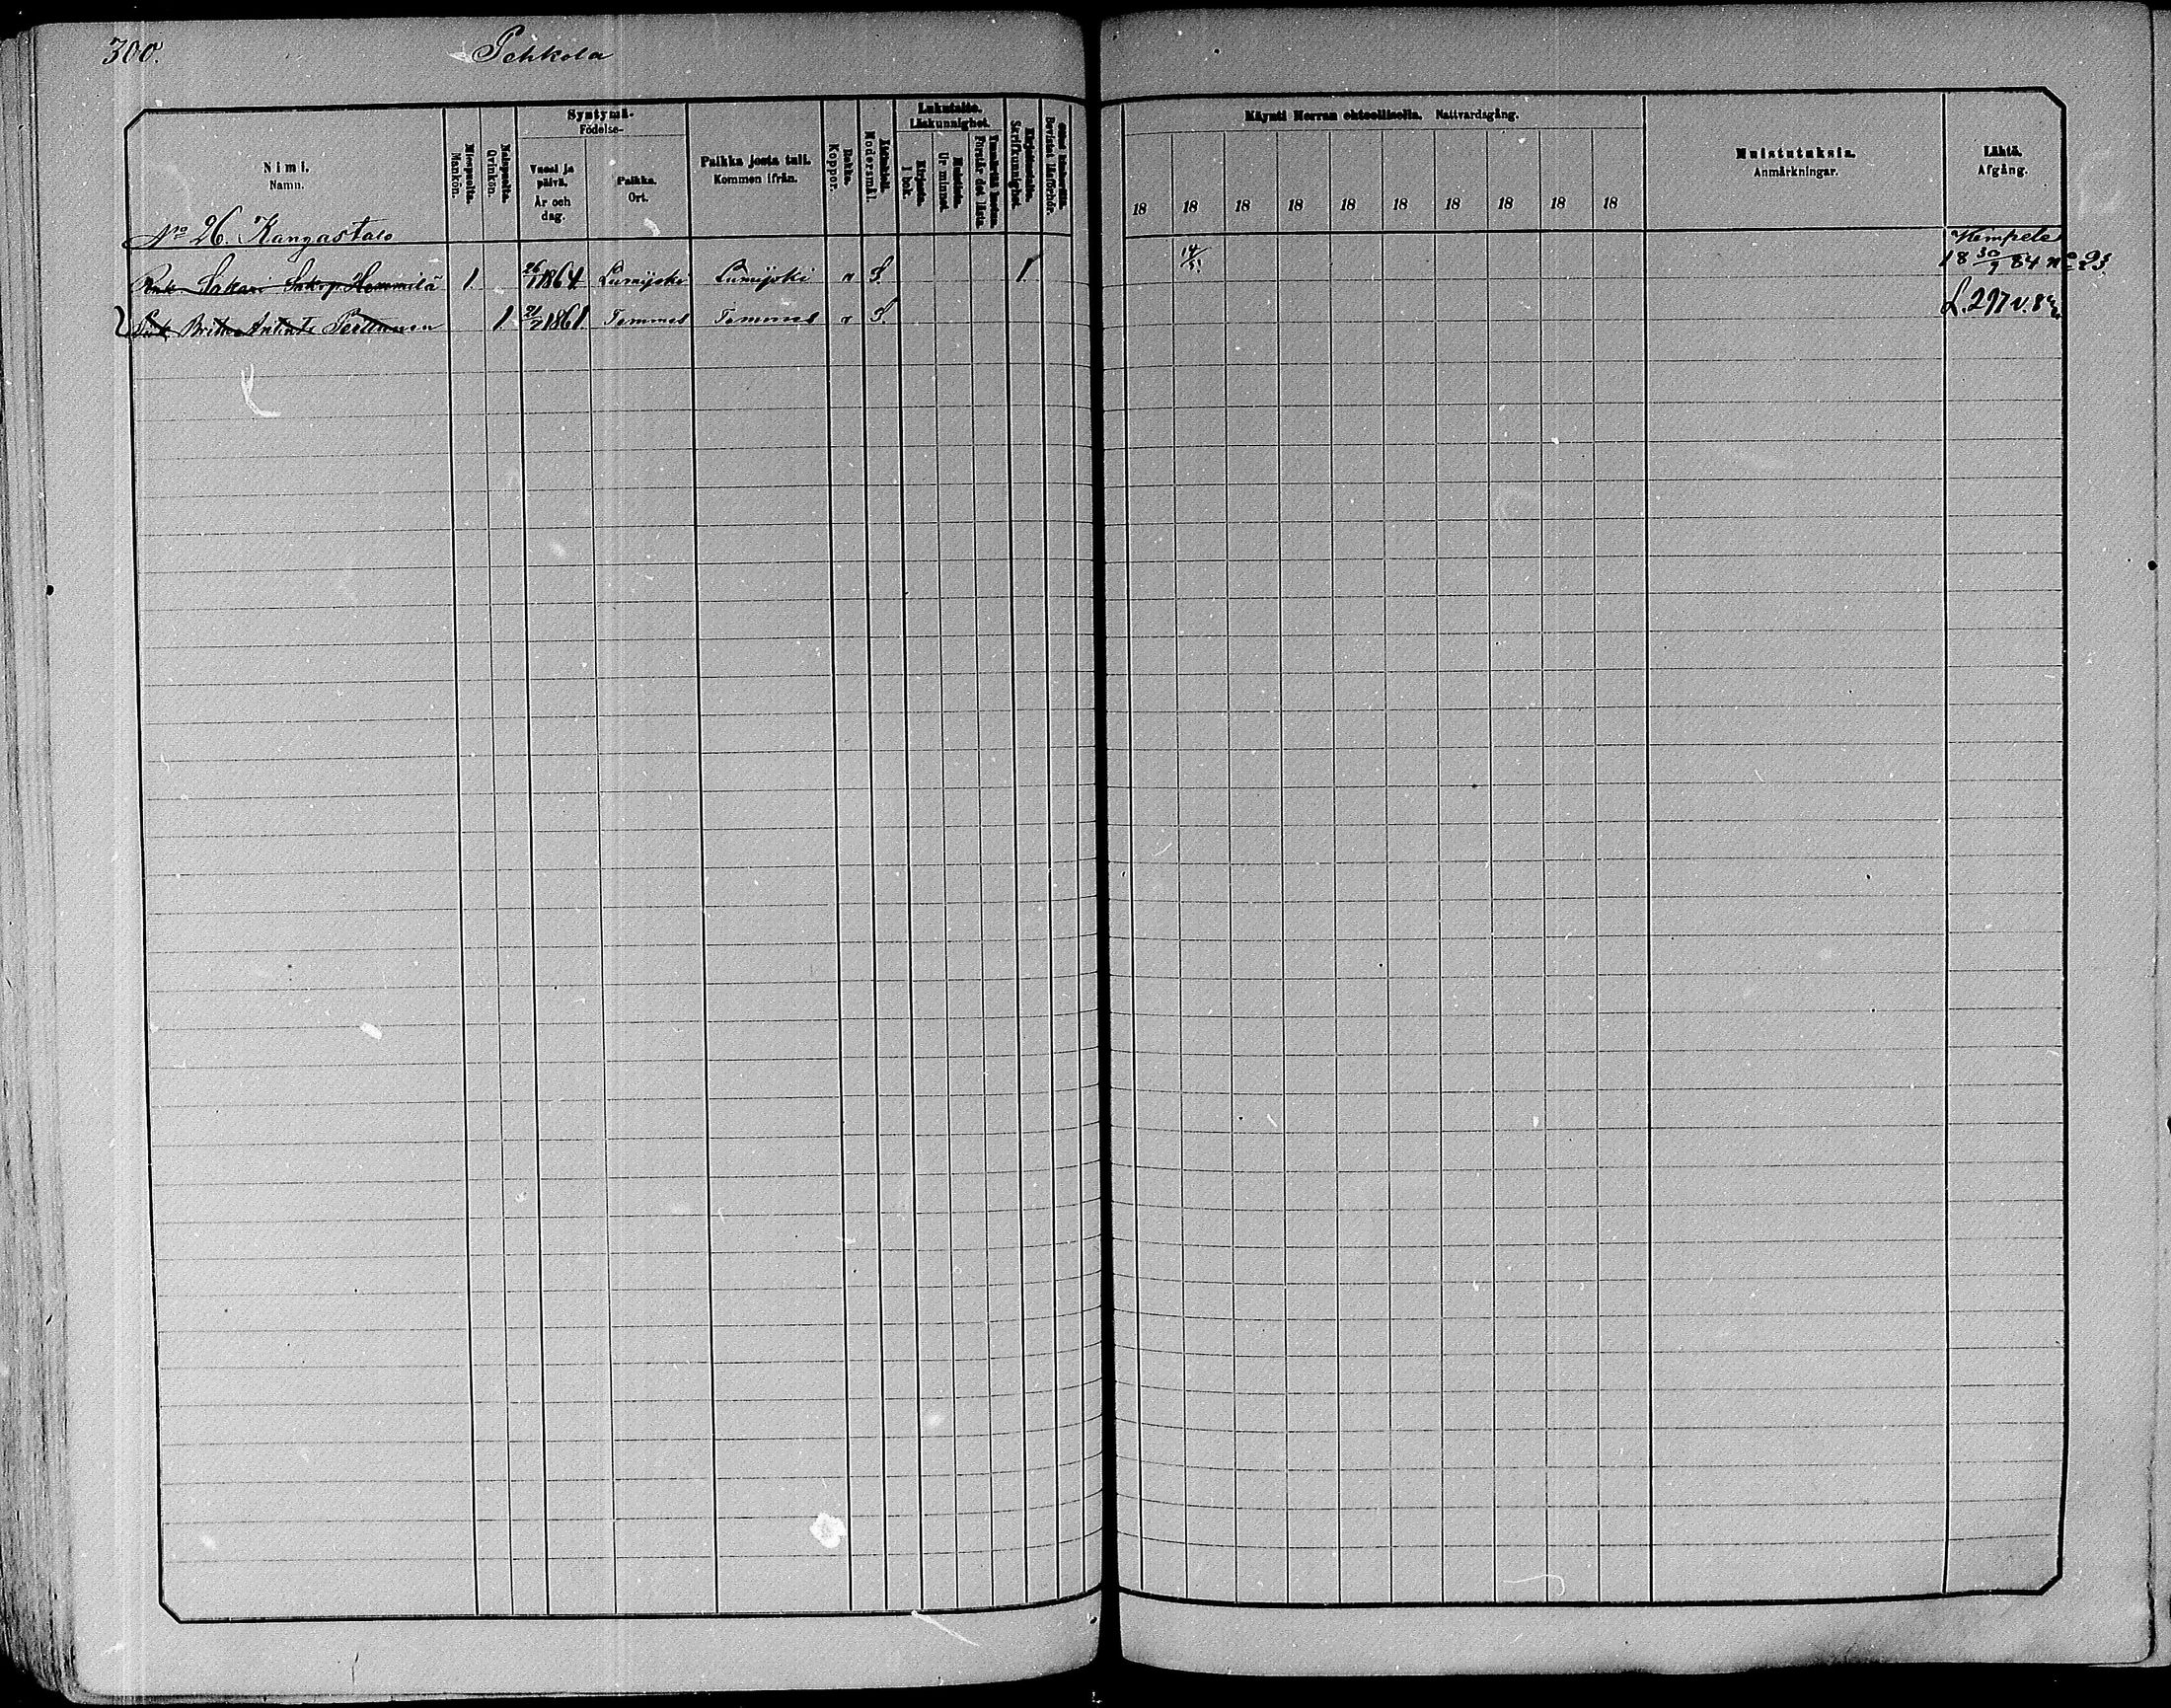 300. Pehkola
Nimi. Namn.
Miespuolia. Mankön.
Naispuolia. Qvinkön.
Syntymä- Födelse-
Vuosi ja päivä. År och dag.
Paikka. Ort.
Paikka josta tuli. Kommen ifrån.
Rokko. Koppor.
Äidinkieli. Modersmål.
Lukutaito. Läskunnighet.
Kirjasta. I bok.
Muistista. Ur minnet.
Förstår det lästa.
Kirjoitustaito. Skrifkunnighet.
Bevistat läsförhör.
Käynti Herran ehtoollisella. Nattvardsgång.
18 18 18 18 18 18 18 18 18 18
Muistutuksia. Anmärkningar.
Lähtö. Afgång.
No 26. Kangastalo
Renk. Sakari Hemmilä 1. 26/1 1864 Lumijoki Lumijoki r S. 1. 14/5 Kempele 18 30/9 84 No 23
Britha Antint. Perttunen 1 21/7 1861 Temmes Temmes r S. L. 297 v. 82